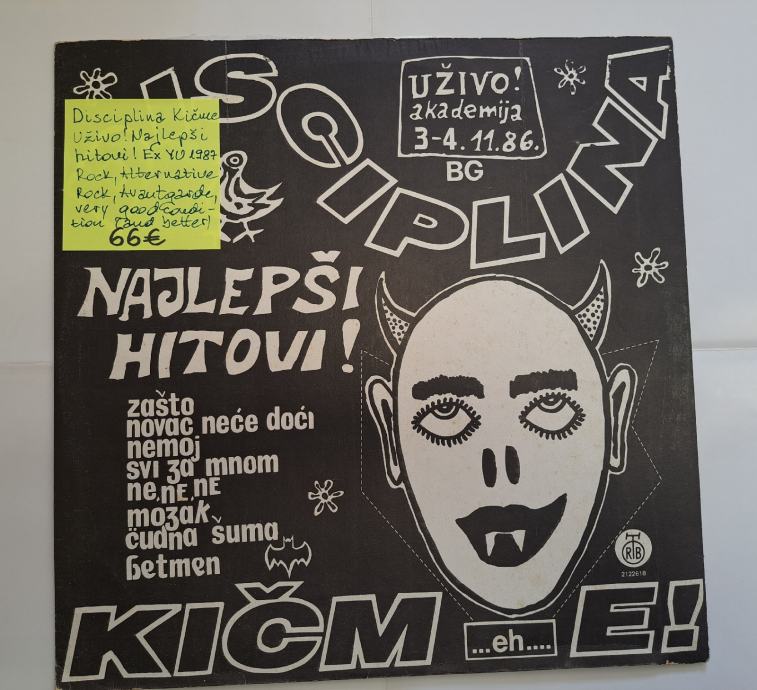 DISCIPLINA
UŽIVO!
akademija
3-4. 11.86.
BG
Disciplina Kičme
Uživo! Najlepši
hitovi! Ex YU 1987
Rock, Alternative
Rock, Avantgarde,
very good condi-
tion (and better)
66€
NAJLEPŠI
HITOVI!
zašto
novac neće doći
nemoj
svi za mnom
ne, NE, NE
mozak
čudna šuma
betmen
RTB
2122618
KIČM E!
...eh....